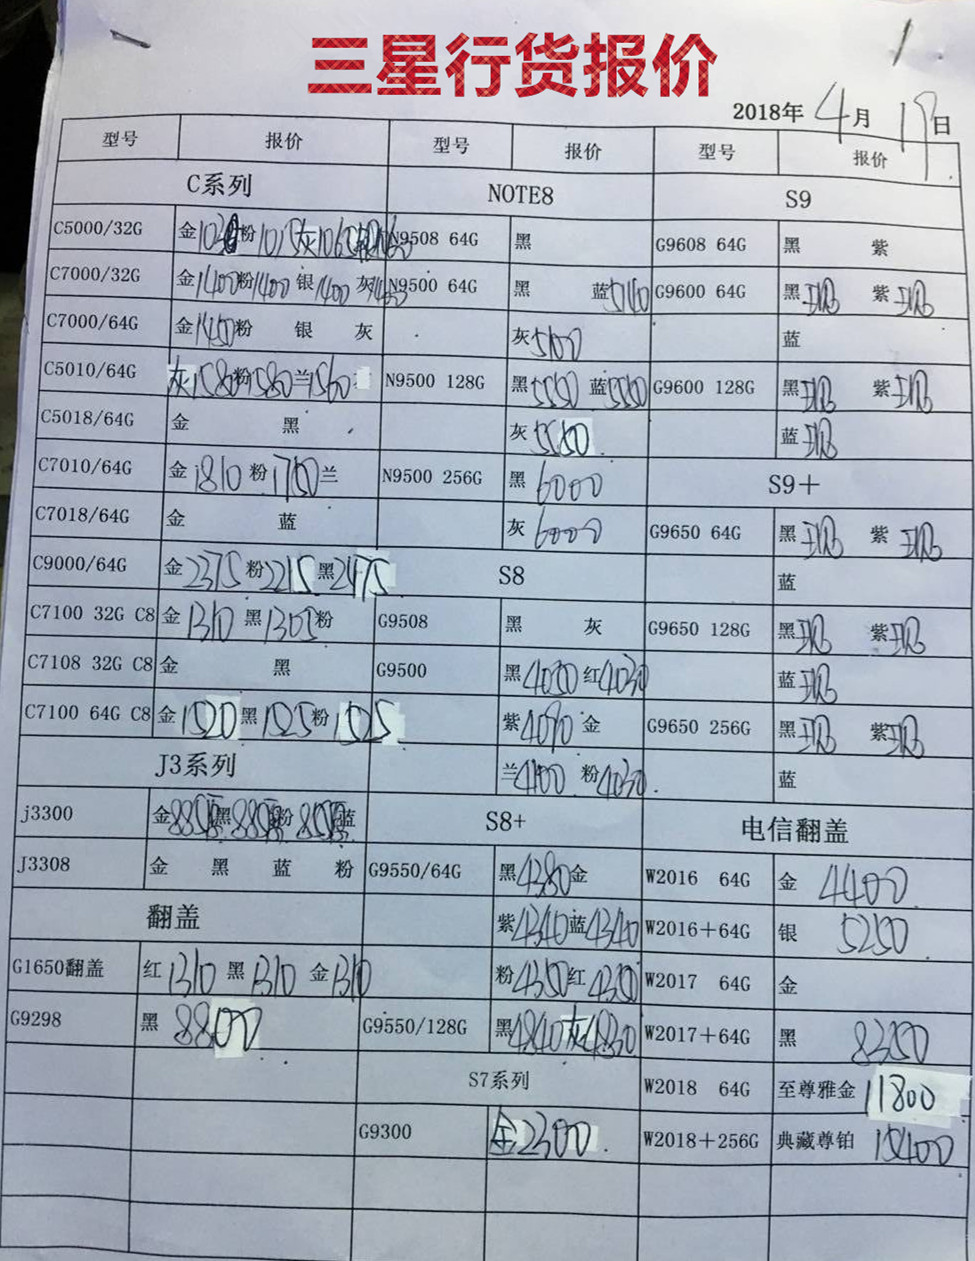 三星行货报价
2018年 4月 19日
型号 报价 型号 报价 型号 报价
C系列 NOTE8 S9
C5000/32G 金 粉1015灰1065 N9508 64G 黑 G9608 64G 黑 紫
C7000/32G 金1400粉1400 银1400 灰 N9500 64G 黑 蓝5140 G9600 64G 黑 紫
C7000/64G 金1450粉 银 灰 灰5100 蓝
C5010/64G 灰1580粉1580兰1560 N9500 128G 黑5550 蓝5550 G9600 128G 黑 紫
C5018/64G 金 黑 灰5550 蓝
C7010/64G 金1810 粉1750兰 N9500 256G 黑6000 S9+
C7018/64G 金 蓝 灰6000 G9650 64G 黑 紫
C9000/64G 金2375粉2215黑2475 S8 蓝
C7100 32G C8 金1310 黑1305粉 G9508 黑 灰 G9650 128G 黑 紫
C7108 32G C8 金 黑 G9500 黑4030红4030 蓝
C7100 64G C8 金1520黑1525粉1525 紫4090 金 G9650 256G 黑 紫
J3系列 兰4100 粉4030 蓝
j3300 金880黑880粉850蓝 S8+ 电信翻盖
J3308 金 黑 蓝 粉 G9550/64G 黑4380金 W2016 64G 金 4400
翻盖 紫4340蓝4340 W2016+64G 银 5250
G1650翻盖 红1310 黑1310 金1310 粉4350红4350 W2017 64G 金
G9298 黑 8800 G9550/128G 黑4840灰4830 W2017+64G 黑 8350
S7系列 W2018 64G 至尊雅金 11800
G9300 金2300 W2018+256G 典藏尊铂 15400